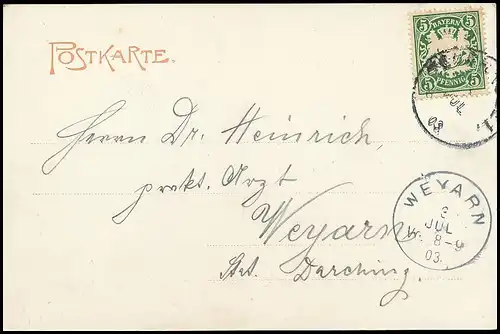 POSTKARTE.
5 BAYERN 5
5 PFENNIG 5
JUL
Herrn Dr. Heinrich,
prakt. Arzt
Weyarn
Stat. Darching.
WEYARN
3
JUL
8-9
03.